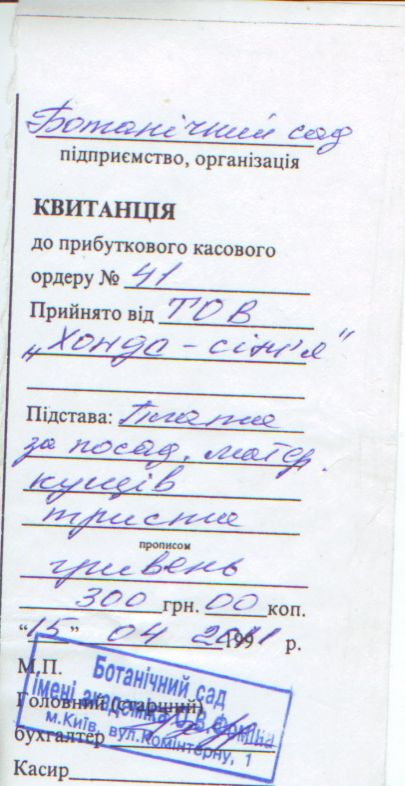 Ботанічний сад
підприємство, організація
КВИТАНЦІЯ
до прибуткового касового
ордеру № 41
Прийнято від ТОВ
„Хонда - сінія"
Підстава: Плата
за посад. матер.
кущів
триста
прописом
гривень
300 грн. 00 коп.
“15” 04 2011 199 р.
М.П.
Головний (старший)
бухгалтер
Касир
Ботанічний сад
імені академіка О.В.Фоміна
м.Київ, вул.Комінтерну, 1